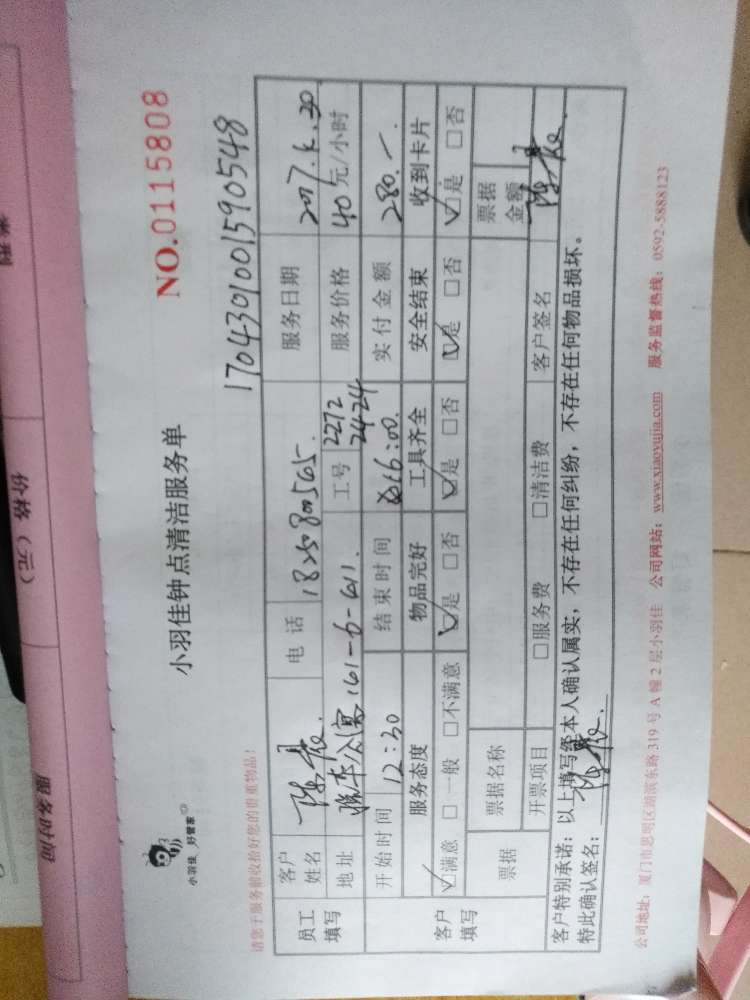 小羽佳 好管家
小羽佳钟点清洁服务单
NO.0115808
17043010015905​48
请您于服务前收拾好您的贵重物品!
员工填写
客户姓名
电话 18250800565.
服务日期 2017.4.30
地址 公寓161-6-611.
工号 2272 2424
服务价格 40元/小时
开始时间 12:30
结束时间 16:00.
实付金额 280.-
客户填写
服务态度 物品完好 工具齐全 安全结束 收到卡片
☑满意 □一般 □不满意 ☑是 □否 ☑是 □否 ☑是 □否 ☑是 □否
票据 票据名称 票据金额
开票项目 □服务费 □清洁费 客户签名
客户特别承诺:以上填写经本人确认属实,不存在任何纠纷,不存在任何物品损坏。
特此确认签名:
公司地址:厦门市思明区湖滨东路319号A幢2层小羽佳 公司网站:www.xiaoyujia.com 服务监督热线:0592-5888123
服务时间 价格(元) 类型